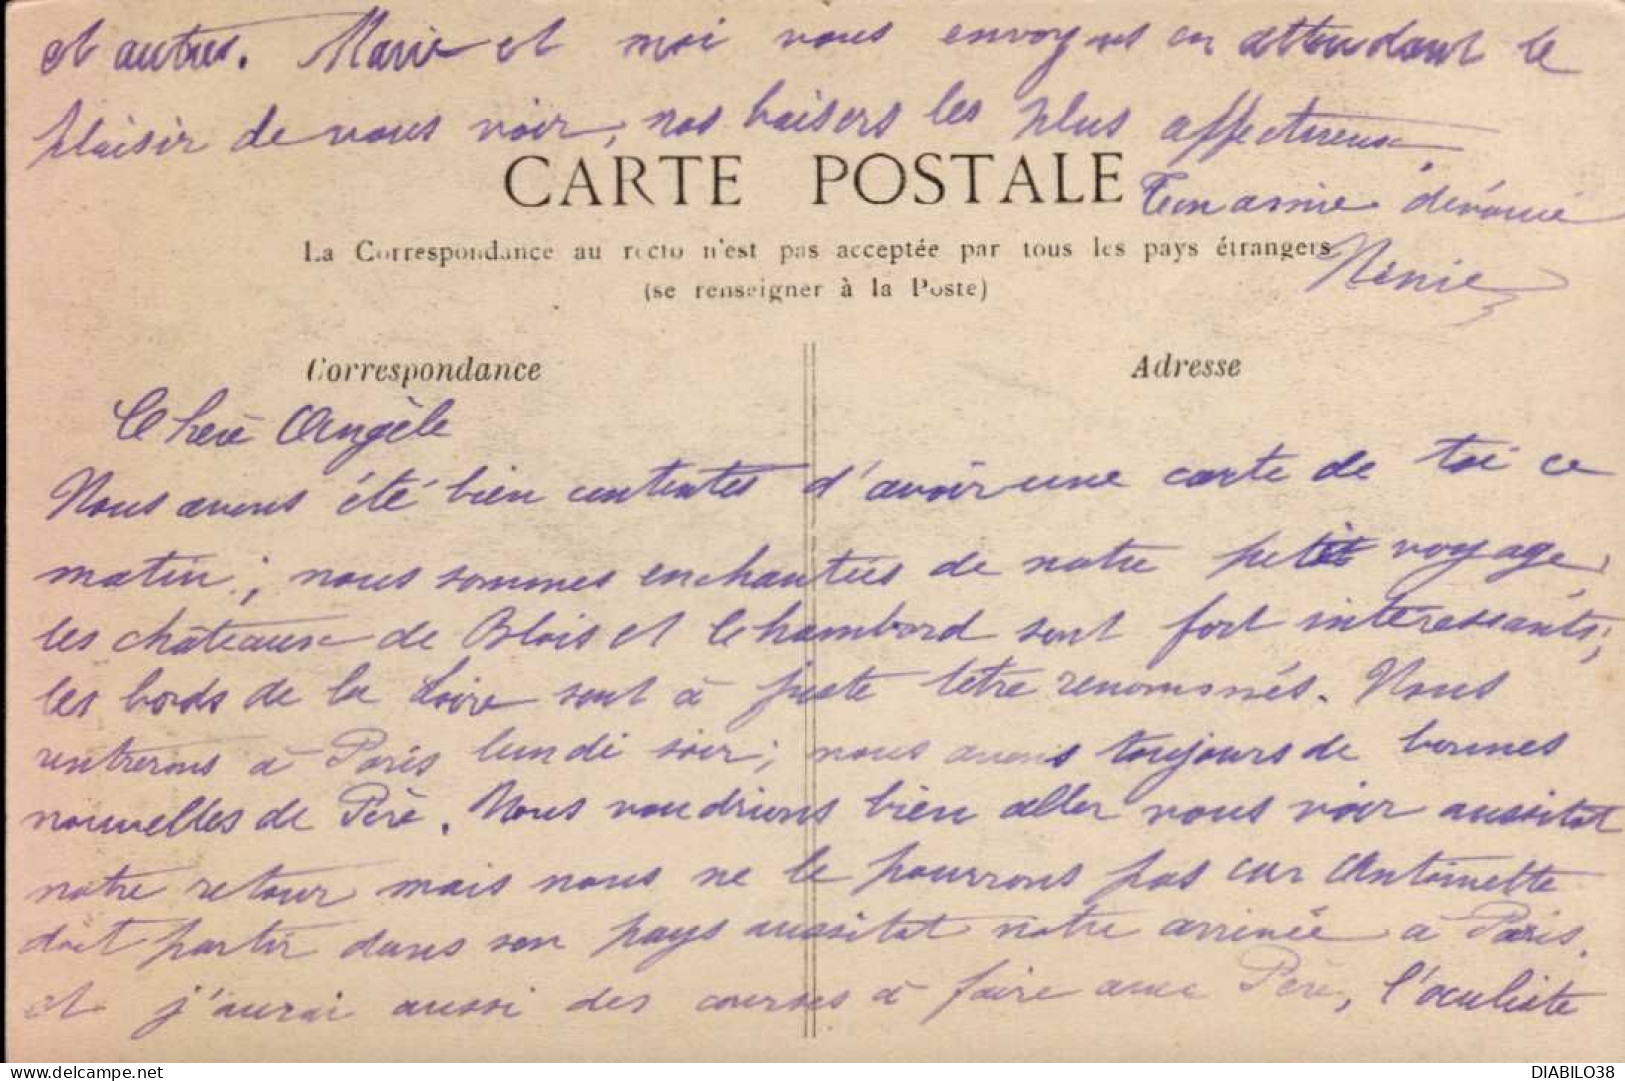 et autres. Marie et moi vous envoyons en attendant le
plaisir de vous voir, nos baisers les plus affectueux,
CARTE POSTALE
Ton amie dévouée
La Correspondance au recto n'est pas acceptée par tous les pays étrangers
(se renseigner à la Poste)
Ninie
Correspondance
Adresse
Chère Angèle
Nous avons été bien contentes d'avoir une carte de toi ce
matin; nous sommes enchantées de notre petit voyage,
les châteaux de Blois et Chambord sont fort intéressants;
les bords de la Loire sont à juste titre renommés. Nous
rentrerons à Paris lundi soir; nous avons toujours de bonnes
nouvelles de Père. Nous voudrions bien aller vous voir aussitot
notre retour mais nous ne le pourrons pas car Antoinette
doit partir dans son pays aussitot notre arrivée à Paris.
et j'aurai aussi des courses à faire avec Père, l'oculiste
www.delcampe.net
DIABILO38